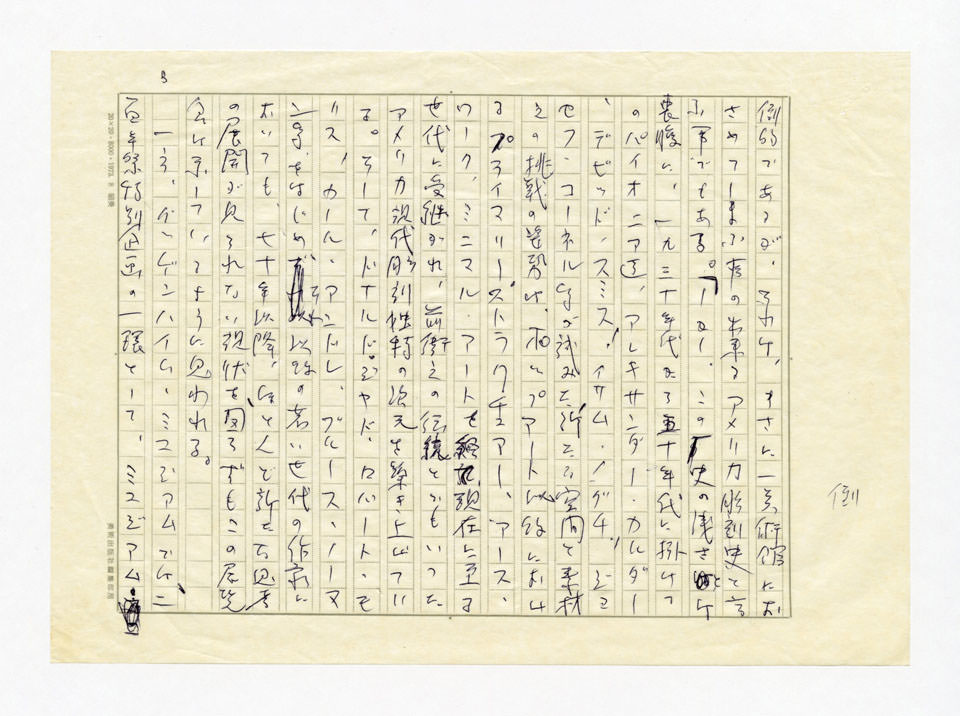 倒的であるが、それは、まさに一美術館にお
さめてしまふ事の出来るアメリカ彫刻史と言
ふ事でもある。しかし、この歴史の浅さは
裏腹に、一九三十年代から五十年代に掛けて
のパイオニア達、アレキサンダー・カルダー
、デビッド・スミス、イサム・ノグチ、ジョ
セフ・コーネル等が試みた新たな空間と素材
への挑戦の姿勢は、ポップアート以後におけ
るプライマリー・ストラクチュアー、アース・
ワーク、ミニマル・アートを経て現在に至る
世代に受継がれ、前衛之の伝統とでもいった
アメリカ現代彫刻独特の次元を築き上げてい
る。そして、ドナルド・ジャド、ロバート・モ
リス、カール・アンドレ、ブルース・ノーマ
ン等をはじめ それ以後の若い世代の作家に
おいても、七十年以降、ほとんど新たな思考
の展開が見られない現状を図らずもこの展覧
会は示しているように思われる。
一方、グッゲンハイム・ミュジアムでは、二
百年祭特別企画の一環として、ミュジアム・
倒
3
20×20